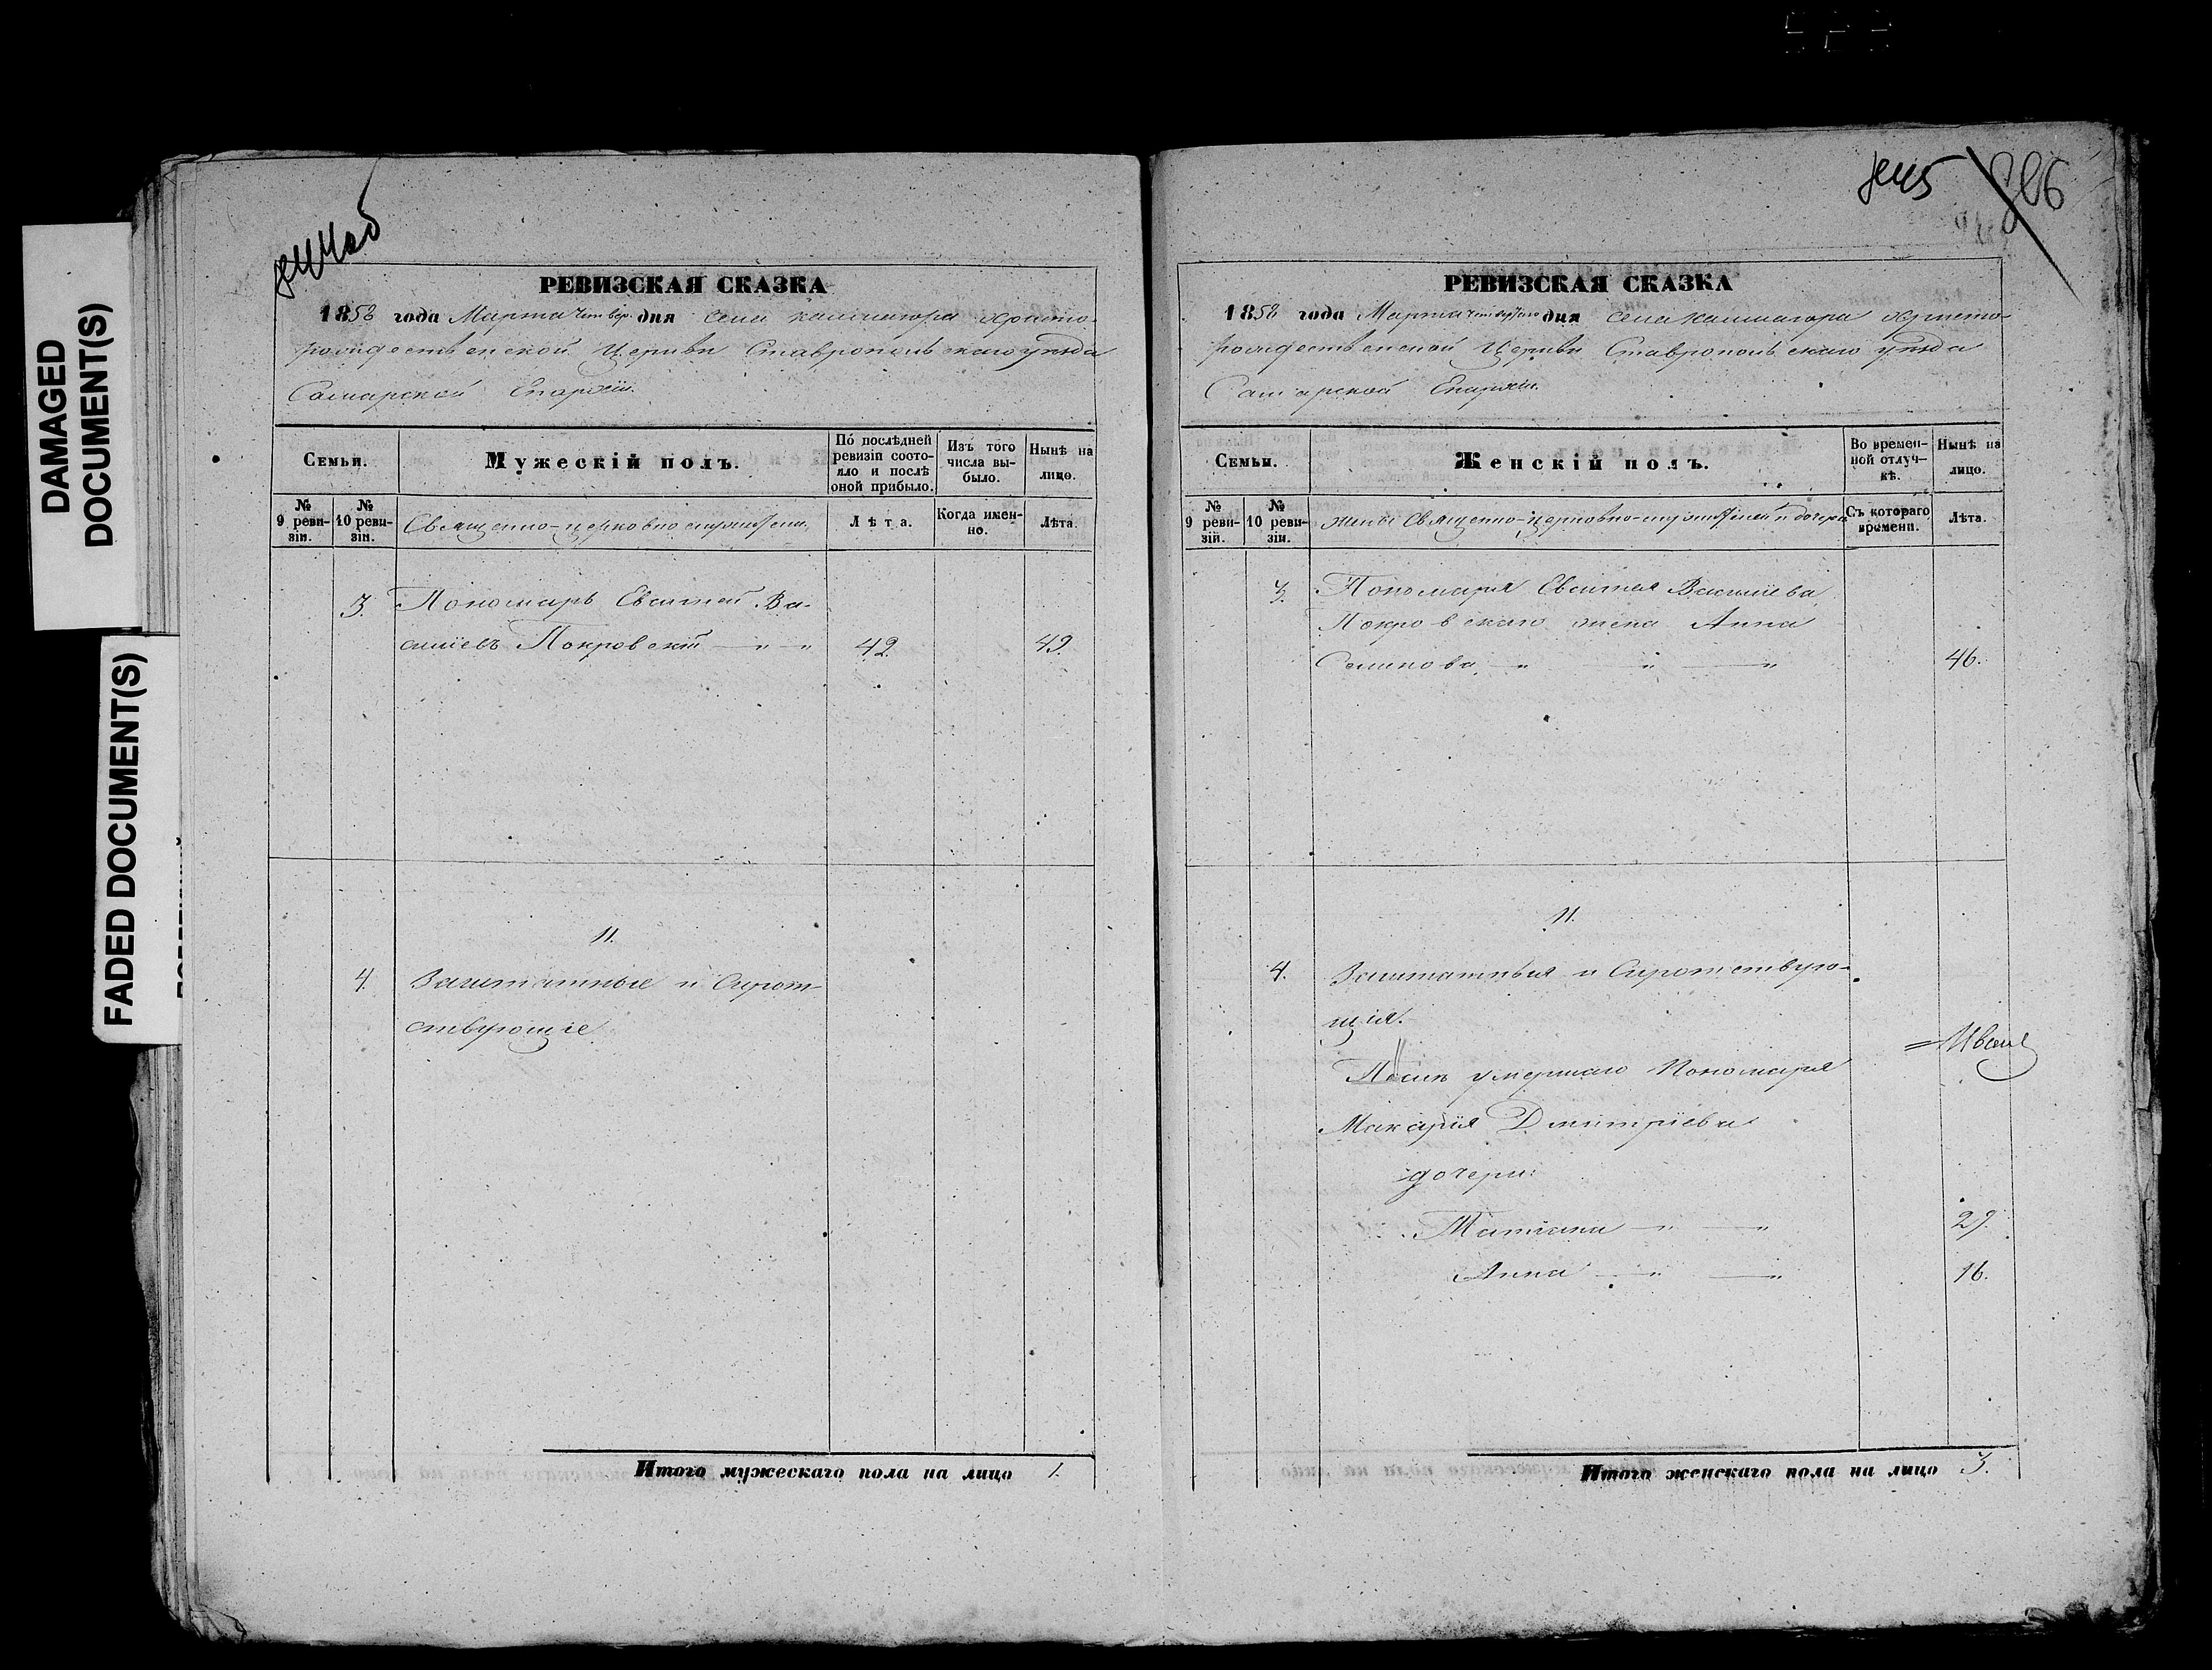 DAMAGED
DOCUMENT(S)
FADED DOCUMENT(S)
РЕВИЗСКАЯ СКАЗКА
1858 года Марта четвер. дня села Кашпигора Христо-
рождественской Церкви Ставропольскаго уѣзда
Самарской Епархіи.
Семьи.
Мужескій полъ.
По послѣдней
ревизіи состо-
яло и послѣ
оной прибыло.
Изъ того
числа вы-
было.
Нынѣ на
лицо.
№
9 реви-
зіи.
№
10 реви-
зіи.
Священно-церковнослужители
Лѣта.
Когда имен-
но.
Лѣта.
3. Пономарь Евсигней Ва-
силіевъ Покровскій — " — " 42. 49.
II.
4. Заштатные и Сирот-
ствующіе
Итого мужескаго пола на лицо 1.
206
РЕВИЗСКАЯ СКАЗКА
1858 года Марта четвертаго дня села Кашпигора Христо-
рождественской Церкви Ставропольскаго уѣзда
Самарской Епархіи.
Семьи.
Женскій полъ.
Во времен-
ной отлуч-
кѣ.
Нынѣ на
лицо.
№
9 реви-
зій.
№
10 реви-
зіи.
жены Священно-церковно-служителей и дочери
Съ котораго
времени.
Лѣта.
3. Пономаря Евсигнея Василіева
Покровскаго жена Анна
Семенова — " — " — " 46.
II.
4. Заштатныя и Сиротствую-
щія.
=Ивана
Послѣ умершаго Пономаря
Макарія Дмитріева
дочери:
Татіана — " — " 29.
Анна — " — " 16.
Итого женскаго пола на лицо 3.